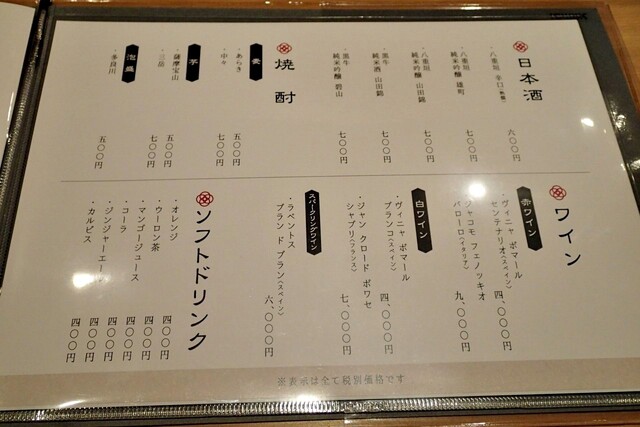 日本酒
・八重垣 辛口(熱燗) 六〇〇円
・八重垣
純米吟醸 雄町 七〇〇円
・八重垣
純米吟醸 山田錦 七〇〇円
・黒牛
純米酒 山田錦 七〇〇円
・黒牛
純米吟醸 碧山 七〇〇円
焼酎
麦
・あらき 五〇〇円
・中々 七〇〇円
芋
・薩摩宝山 五〇〇円
・三岳 七〇〇円
泡盛
・多良川 五〇〇円
ワイン
赤ワイン
・ヴィニャ ボマール
センテナリオ(スペイン) 四、〇〇〇円
・ジャコモ フェノッキオ
バローロ(イタリア) 九、〇〇〇円
白ワイン
・ヴィニャ ボマール
ブランコ(スペイン) 四、〇〇〇円
・ジャン クロード ボワセ
シャブリ(フランス) 七、〇〇〇円
スパークリングワイン
・ラベントス
ブラン ド ブラン(スペイン) 六、〇〇〇円
ソフトドリンク
・オレンジ 四〇〇円
・ウーロン茶 四〇〇円
・マンゴージュース 四〇〇円
・コーラ 四〇〇円
・ジンジャーエール 四〇〇円
・カルピス 四〇〇円
※表示は全て税別価格です